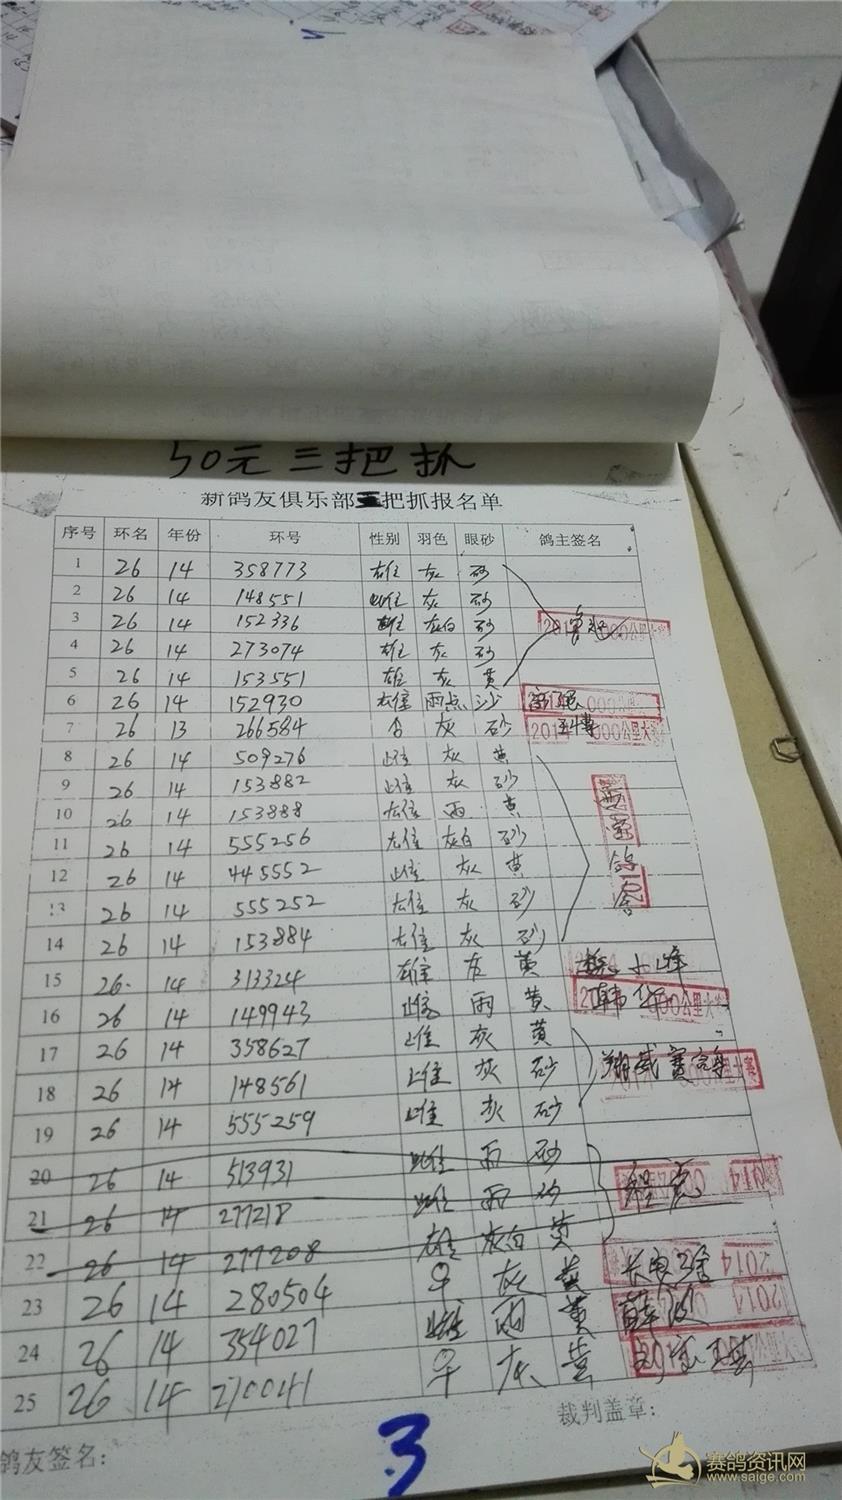 50元三把抓
新鸽友俱乐部三把抓报名单
序号 环名 年份 环号 性别 羽色 眼砂 鸽主签名
1 26 14 358773 雄 灰 砂
2 26 14 148551 雌 灰 砂
3 26 14 152336 雄 灰白 砂
4 26 14 273074 雄 灰 砂
5 26 14 153551 雄 灰 黄
6 26 14 152930 雄 雨点 沙
7 26 13 266584 灰 砂
8 26 14 509276 雌 灰 黄
9 26 14 153882 雌 灰 砂
10 26 14 153888 雄 雨 黄
11 26 14 555256 雄 灰白 砂
12 26 14 445552 雌 灰 黄
13 26 14 555252 雄 灰 砂
14 26 14 153884 雄 灰 砂
15 26 14 313324 雄 灰 黄
16 26 14 149943 雌 雨 黄 韩华
17 26 14 358627 雌 灰 黄
18 26 14 148561 雌 灰 砂 翔威赛鸽
19 26 14 555259 雌 灰 砂
20 26 14 513931 雌 雨 砂
21 26 14 277218 雌 雨 砂 程亮
22 26 14 277208 雄 灰白 黄
23 26 14 280504 ♀ 灰 黄
24 26 14 354027 雌 雨 黄 薛波
25 26 14 270041 ♀ 灰 黄
鸽友签名:
裁判盖章:
3
赛鸽资讯网
www.saige.com